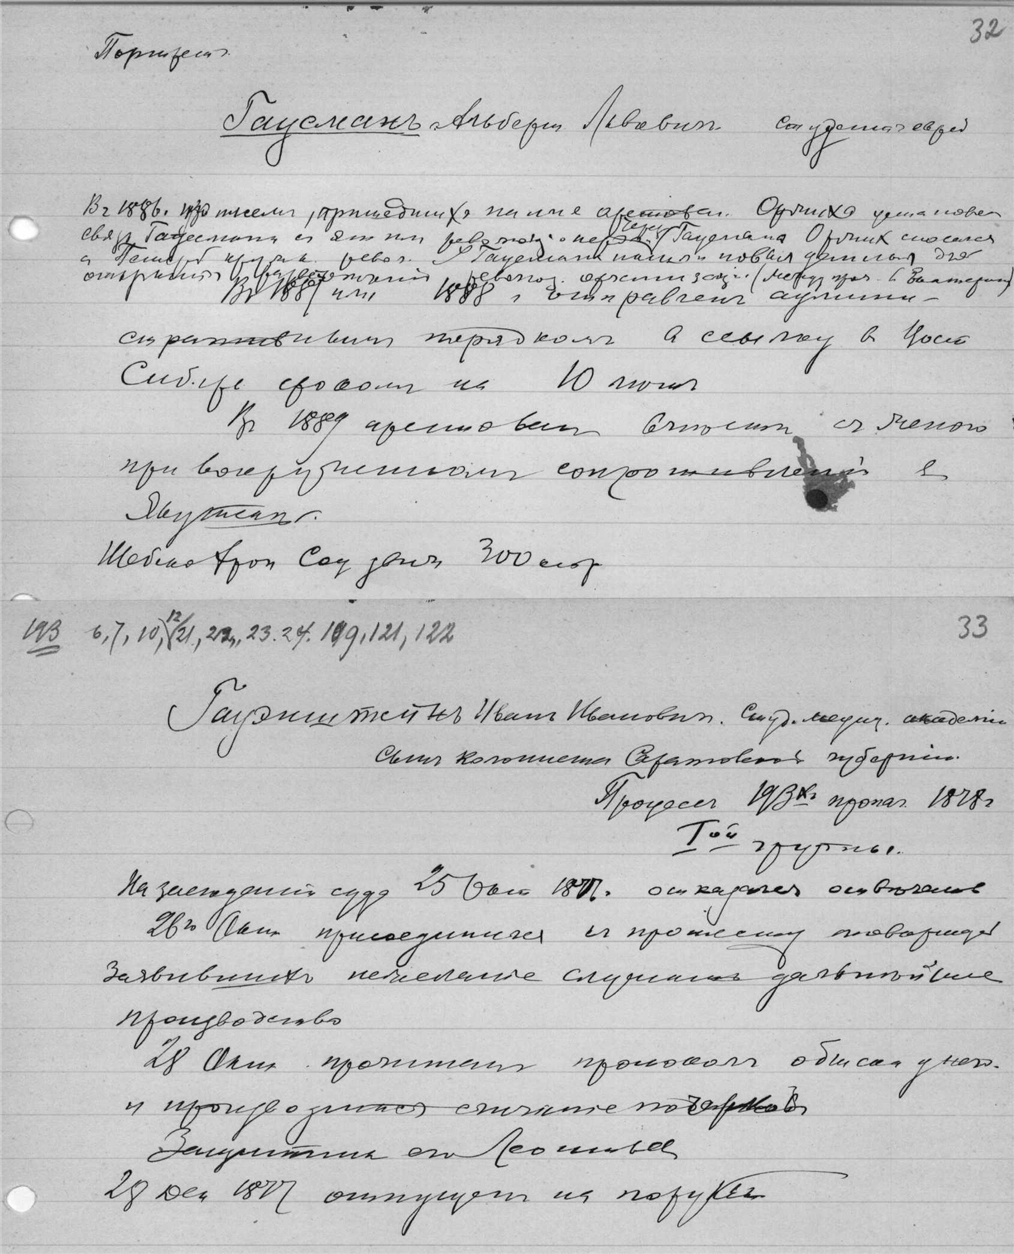 32
Портретъ
Гаусманъ Альбертъ Львовичъ студентъ еврей
Въ 1886 г. изъ писемъ, пришедшихъ на имя арестован. Оржиха установл
связь Гаусмана съ
Гаусмана Оржих сносился
револ. У Гаусмана найдены новыя данныя для
револ. организаціи (между проч. въ Екатерин
Въ 1887 или 1888 г отправленъ админи-
стративнымъ порядкомъ в ссылку в Вост
Сибирь срокомъ на 10 лѣтъ
Въ 1889 арестованъ вмѣстѣ съ женою
при вооруженномъ сопротивленіи в
Якутскѣ.
300 стр
193 6, 7, 10, 12/21, 22, 23. 24. 119, 121, 122
33
Гауэнштейнъ Иванъ Ивановичъ. Студ. медиц. академіи
сынъ колониста Саратовской губерніи.
Процессъ 193хъ пропаг. 1878 г
Iой группы.
На засѣданіи суда 25 Окт 1877 г. отказался отвѣчать
26го Окт присоединился къ протесту товарищей
заявившихъ нежеланіе слушать дальнѣйшее
производство
28 Окт. прочитанъ протоколъ обыска у него.
и производится сличеніе почерковъ
Защитник его Леонтьев
28 Дек 1877 отпущенъ на поруки